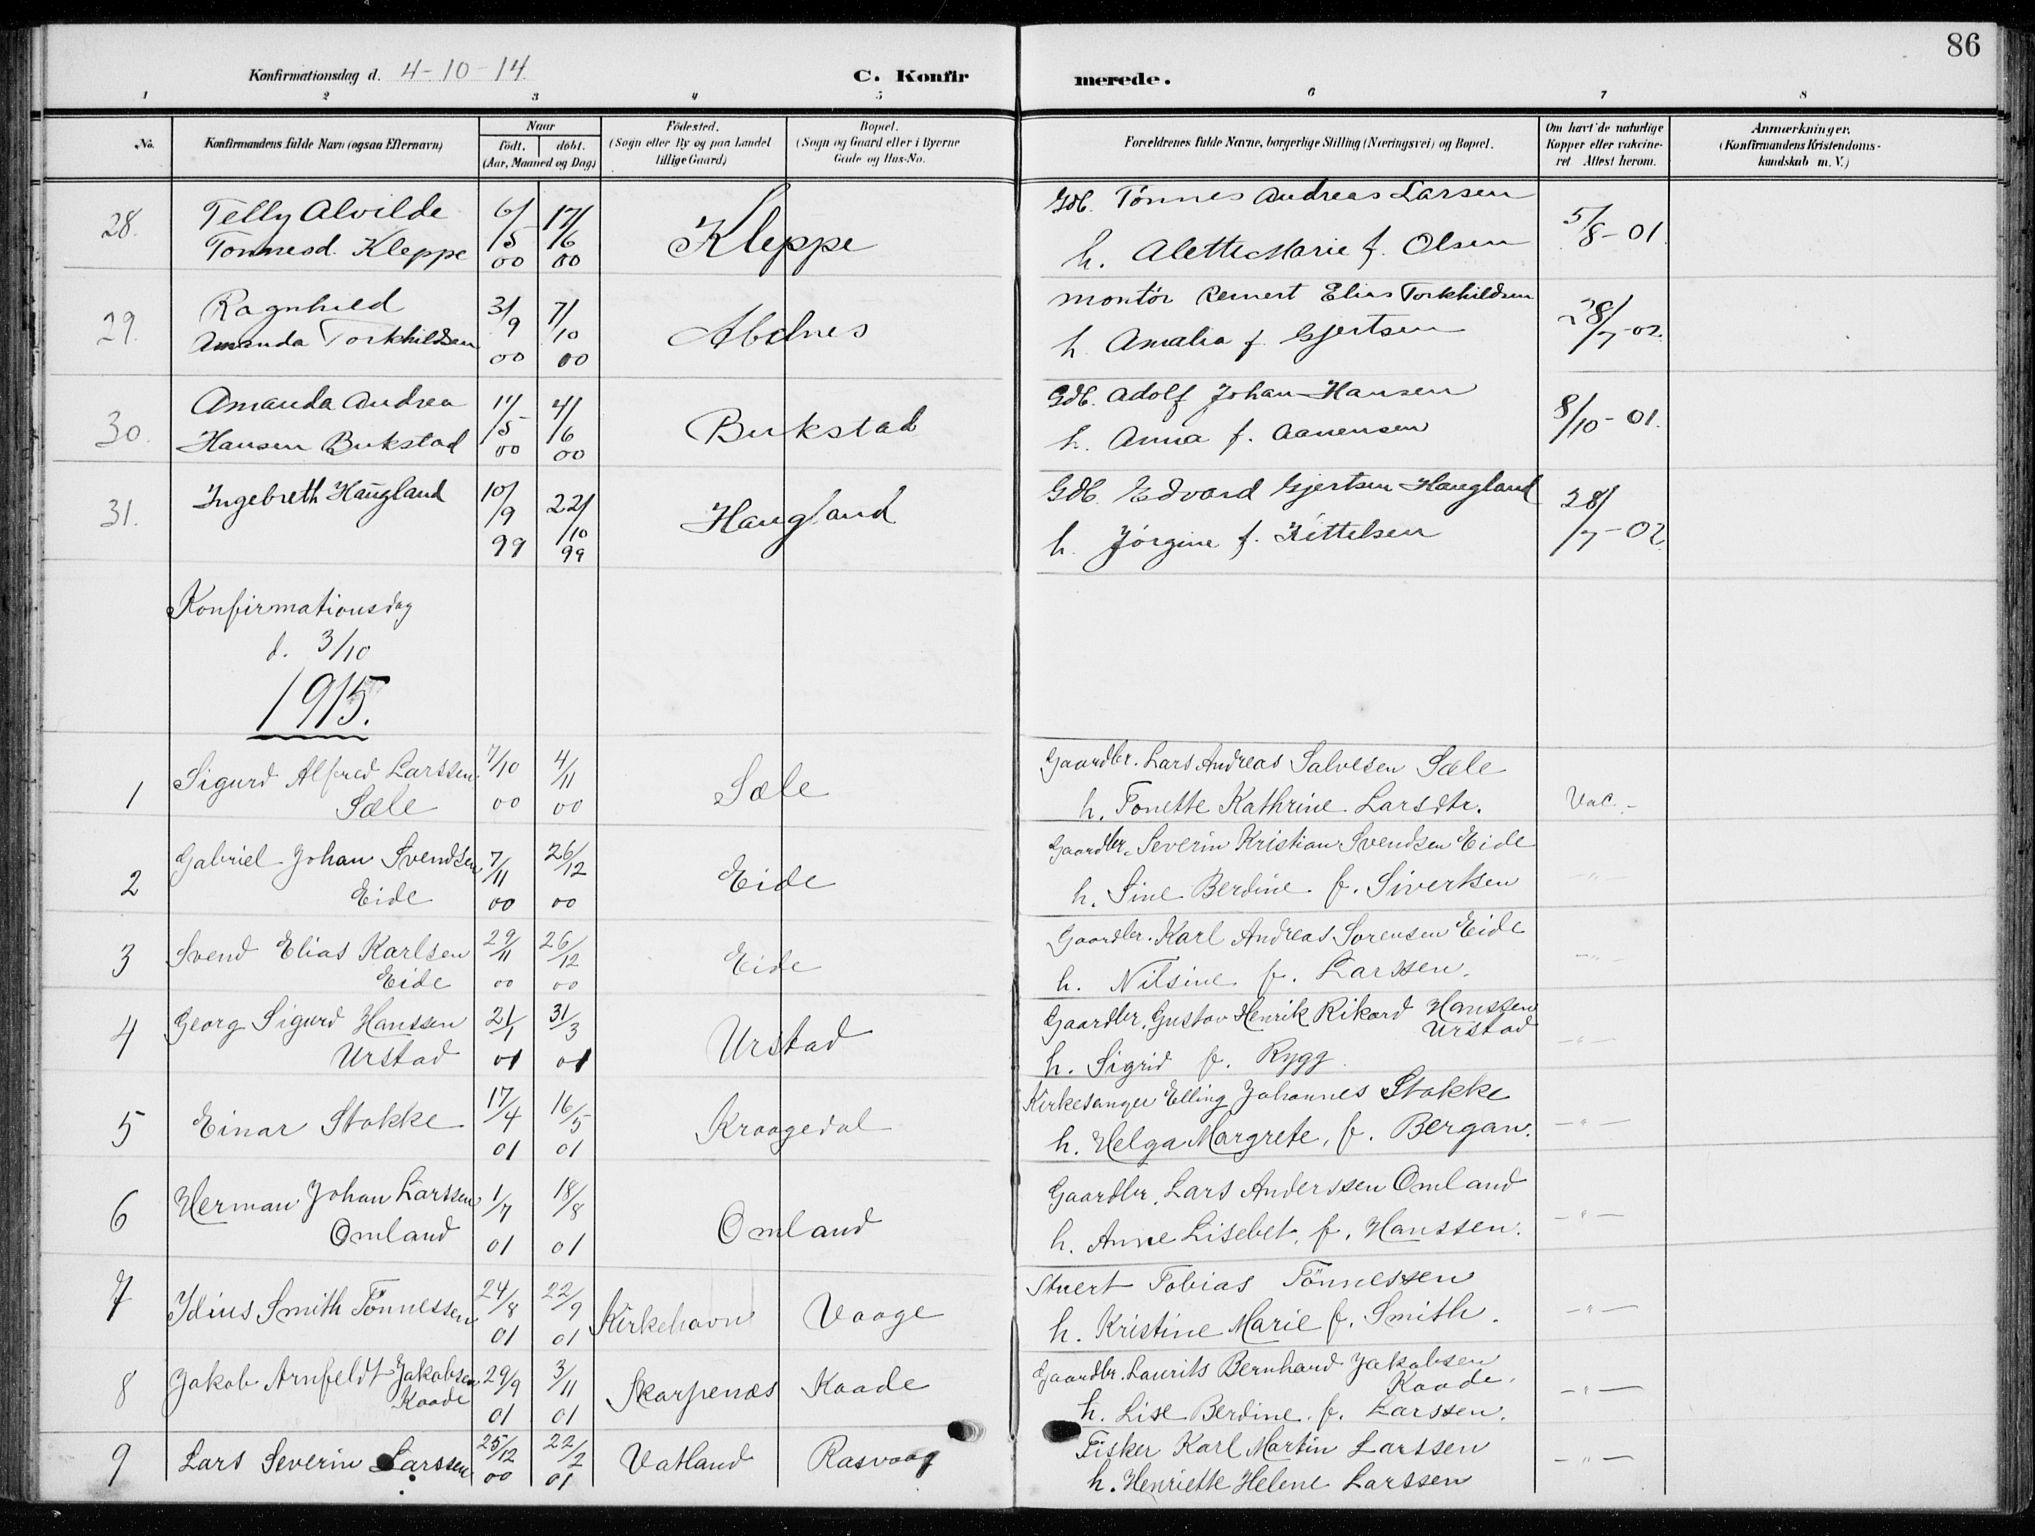 86
Konfirmationsdag d. 4-10-14
C. Konfirmerede.
1 2 3 4 5 6 7 8
No.
Konfirmandens fulde Navn (ogsaa Efternavn)
Naar
født. døbt.
(Aar, Maaned og Dag)
Fødested.
(Sogn eller By og paa Landet
tillige Gaard)
Bopæl.
(Sogn og Gaard eller i Byerne
Gade og Hus-No.
Forældrenes fulde Navne, borgerlige Stilling (Næringsvei) og Bopæl.
Om havt de naturlige
Kopper eller vakcine-
ret Attest herom.
Anmærkninger.
(Konfirmandens Kristendoms-
kundskab m. V.)
28. Telly Alvilde Tønnesd. Kleppe 6/5 00 17/6 00 Kleppe
Gdb. Tønnes Andreas Larsen
h. Alette Marie f. Olsen
5/8-01.
29. Ragnhild
Amanda Torkhildsen 3/9 00 7/10 00 Abelnes
montør Reinert Elias Torkhildsen
h. Amalia f. Gjertsen
28/7-02.
30. Amanda Andrea
Hansen Bukstad 11/5 00 4/6 00 Bukstad
Gdb. Adolf Johan Hansen
h. Anna f. Aanensen
8/10-01.
31. Ingebreth Haugland 10/9 99 22/10 99 Haugland
Gdb. Edvard Gjertsen Haugland
h. Jørgine f. Kittelsen
28/7-02.
Konfirmationsdag
d. 3/10
1915.
1 Sigurd Alfred Larssen
Sæle 7/10 00 4/11 00 Sæle
Gaardbr. Lars Andreas Salvesen Sæle
h. Tonette Kathrine Larsdtr.
Vac. -
2 Gabriel Johan Svendsen
Eide 7/11 00 26/12 00 Eide
Gaardbr. Severin Kristian Svendsen Eide
h. Sine Berdine f. Sivertsen
-"-
3 Svend Elias Karlsen
Eide 29/11 00 26/12 00 Eide
Gaardbr. Karl Andreas Sorensen Eide
h. Nilsine f. Larssen.
-"-
4 Georg Sigurd Hanssen
Urstad 21/1 01 31/3 01 Urstad
Gaardbr. Gustav Henrik Rikard Hanssen
Urstad
h. Sigrid f. Rygg
-"-
5 Einar Stokke 17/4 01 16/5 01 Kraagedal
Kirkesanger Elling Johannes Stokke
h. Helga Margrete, f. Bergan.
-"-
6 Herman Johan Larssen
Omland 1/7 01 18/8 01 Omland
Gaardbr. Lars Anderssen Omland
h. Anne Lisebet, f. Hanssen.
-"-
7 Idius Smith Tönnessen 24/8 01 22/9 01 Kirkehavn Vaage
Stuert Tobias Tönnessen
h. Kristine Marie f. Smith.
-"-
8 Jakob Arnfeldt Jakobsen
Kaade 29/9 01 3/11 01 Skarpenæs Kaade
Gaardbr. Laurits Bernhard Jakobsen
Kaade.
h. Lise Berdine f. Larssen.
-"-
9 Lars Severin Larssen 25/12 00 22/2 01 Vatland Rasvaag
Fisker Karl Martin Larssen
h. Henriette Helene Larssen
-"-